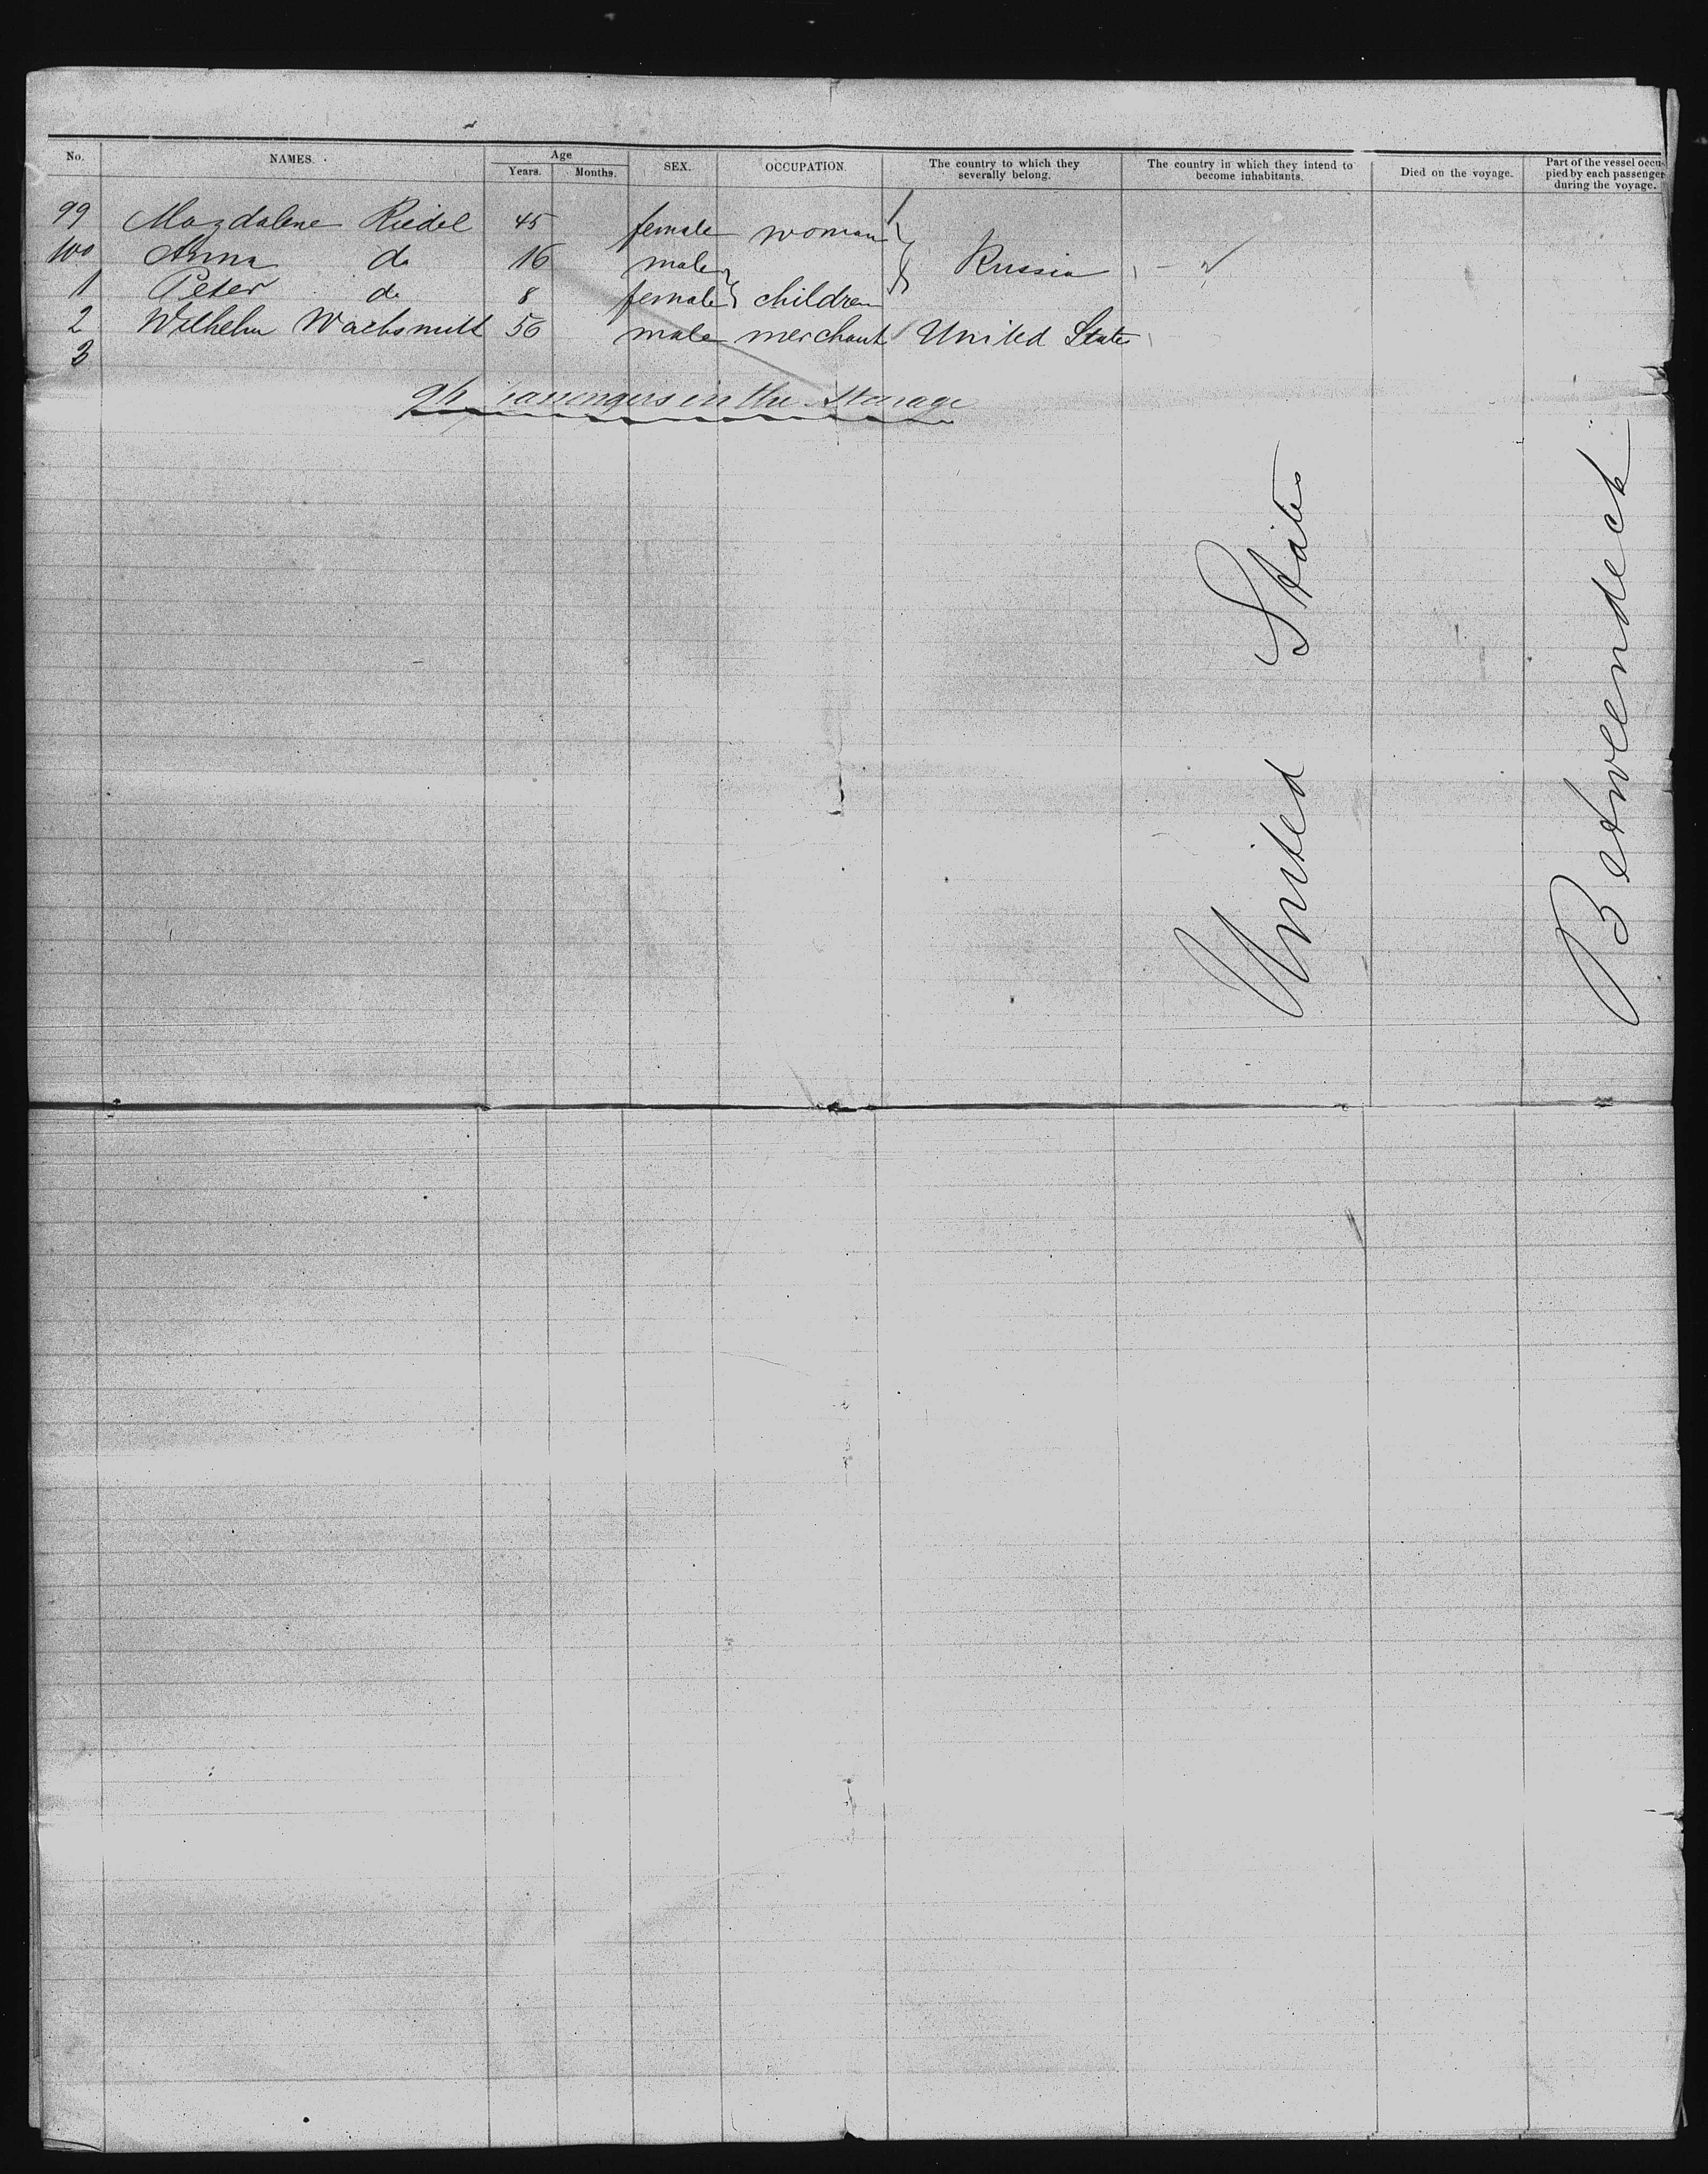 No. NAMES. Age Years. Months. SEX. OCCUPATION. The country to which they severally belong. The country in which they intend to become inhabitants. Died on the voyage. Part of the vessel occupied by each passenger during the voyage.
99 Magdalene Riedel 45 female woman
100 Anna do 16 male Russia
1 Peter do 8 female children
2 Wilhelm Wachsmutt 56 male merchant United States
3
passengers in the Steerage
United States
Betweendeck